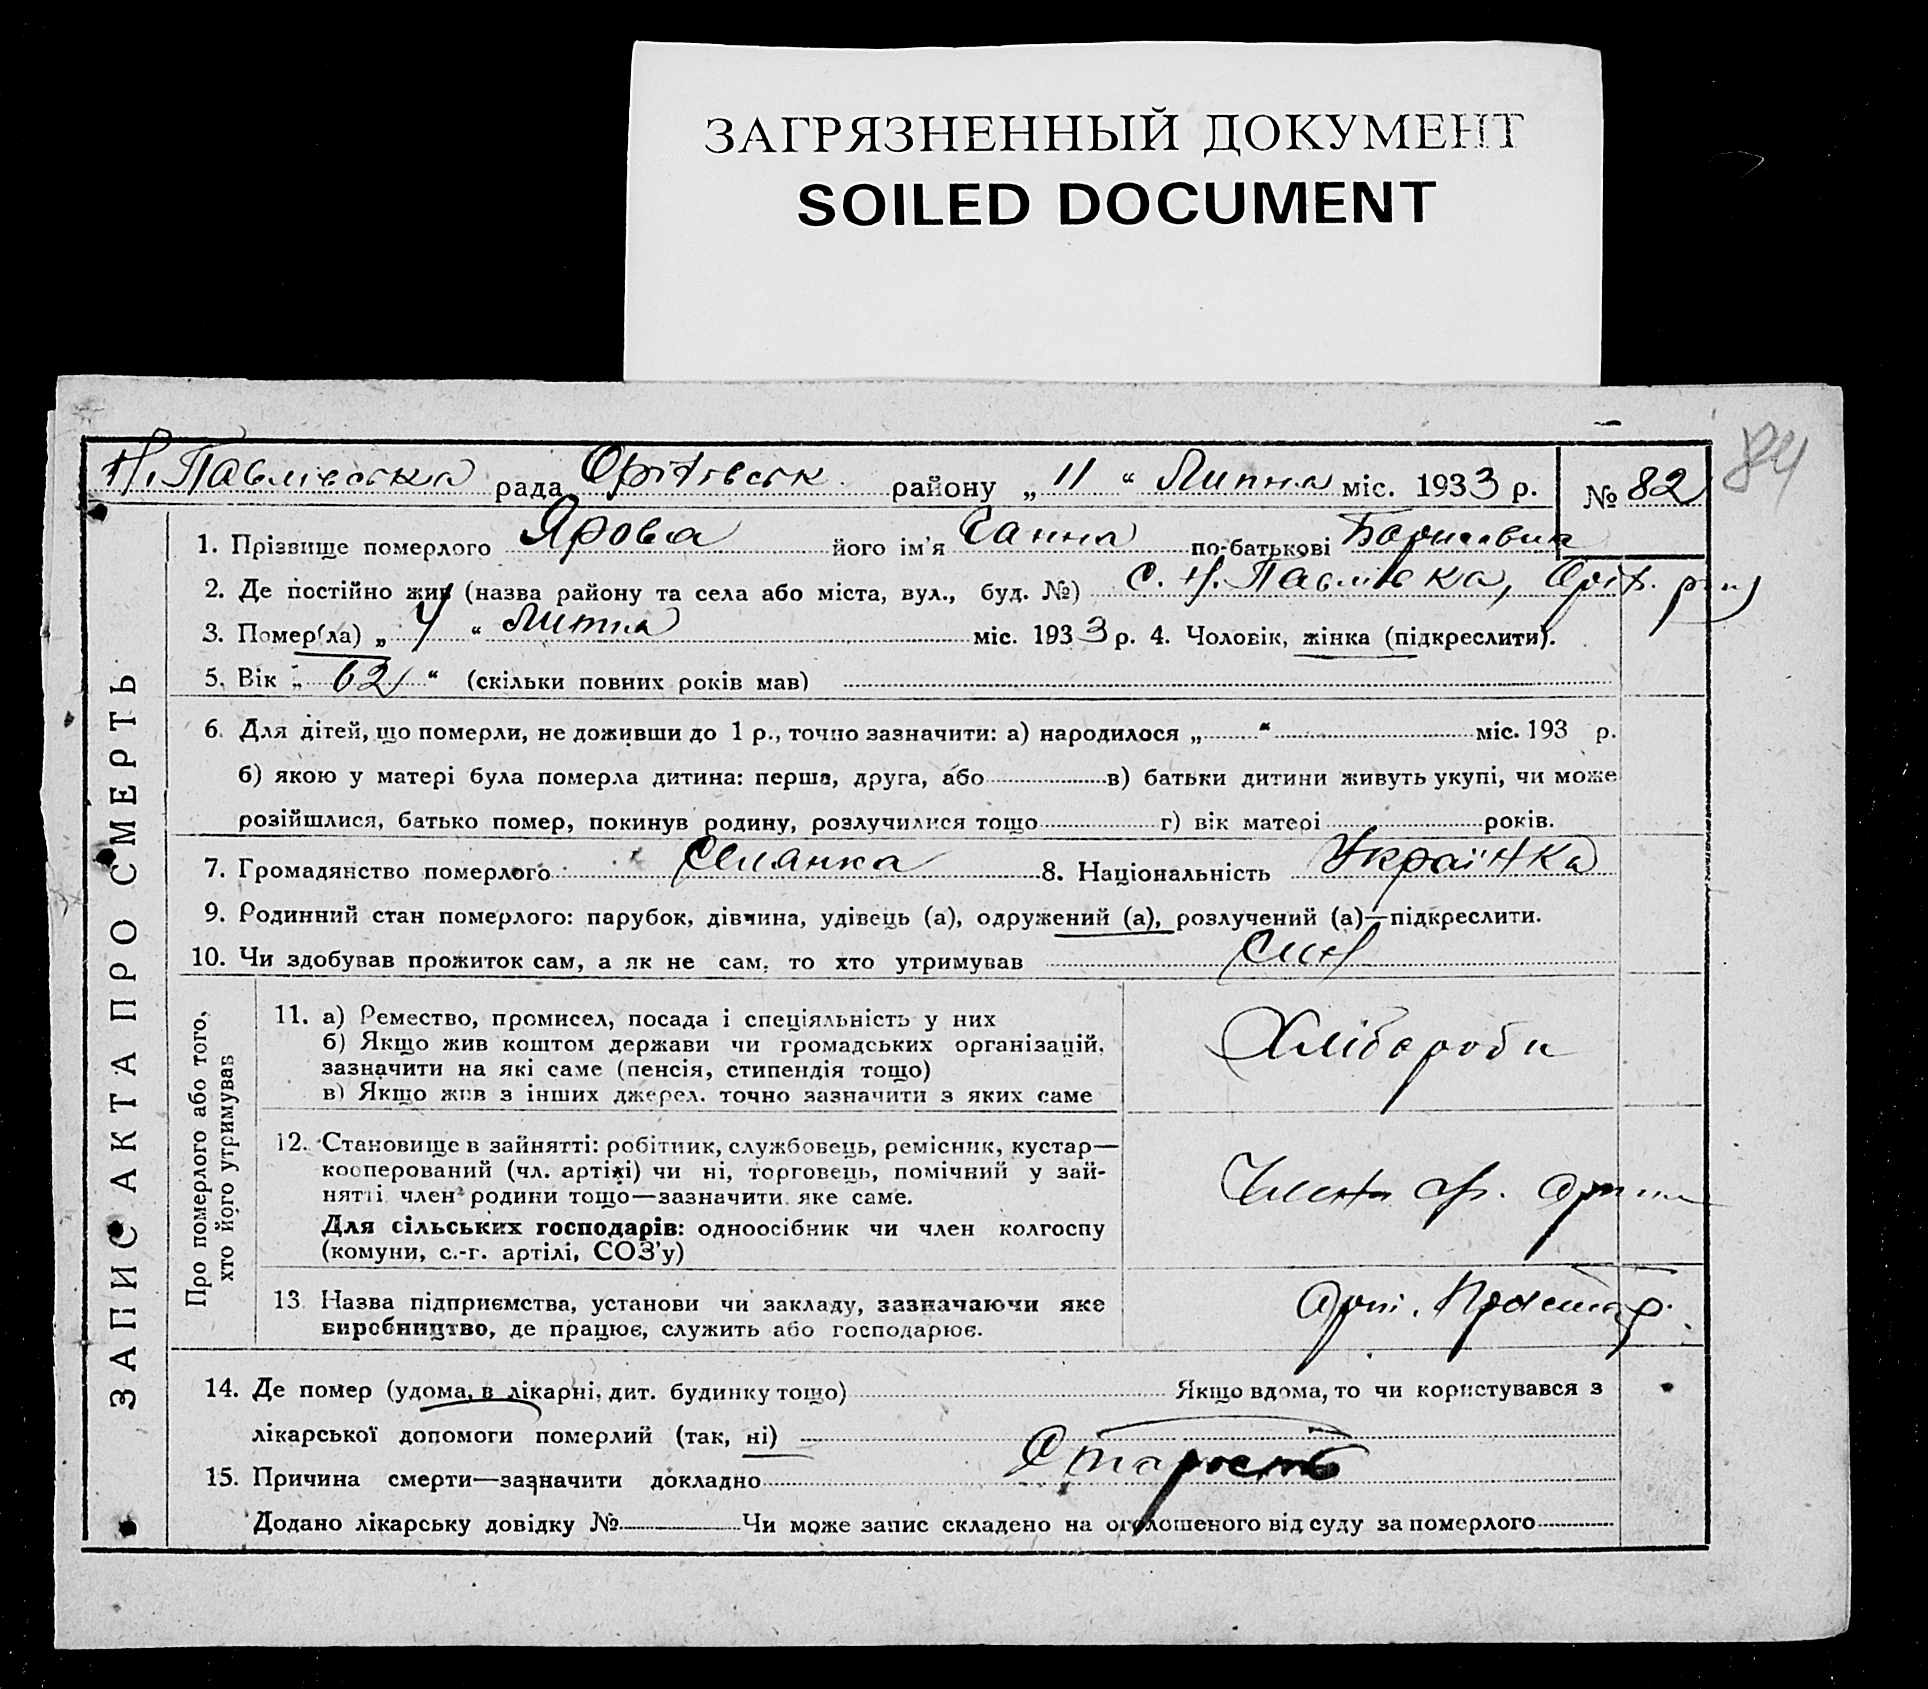 ЗАГРЯЗНЕННЫЙ ДОКУМЕНТ
SOILED DOCUMENT
84
Н. Павлівська рада Оріхівськ району „ 11 “ Липня міс. 1933 р. № 82
1. Прізвище померлого Ярова його ім'я Ганна по-батькові Борисовна
2. Де постійно жив (назва району та села або міста, вул., буд. №) с. Н. Павлівка, Оріх. району
3. Помер(ла) „ 4 “ Липня міс. 1933 р. 4. Чоловік, жінка (підкреслити).
5. Вік „ 62 “ (скільки повних років мав)
6. Для дітей, що померли, не доживши до 1 р., точно зазначити: а) народилося „ “ міс. 193 р.
б) якою у матері була померла дитина: перша, друга, або в) батьки дитини живуть укупі, чи може
розійшлися, батько помер, покинув родину, розлучилися тощо г) вік матері років.
7. Громадянство померлого Селянка 8. Національність Українка
9. Родинний стан померлого: парубок, дівчина, удівець (а), одружений (а), розлучений (а)—підкреслити.
10. Чи здобував прожиток сам, а як не сам, то хто утримував син
ЗАПИС АКТА ПРО СМЕРТЬ
Про померлого або того,
хто його утримував
11. а) Ремество, промисел, посада і спеціяльність у них
б) Якщо жив коштом держави чи громадських організацій,
зазначити на які саме (пенсія, стипендія тощо)
в) Якщо жив з інших джерел, точно зазначити з яких саме
Хлібороби
12. Становище в зайнятті: робітник, службовець, ремісник, кустар—
кооперований (чл. артілі) чи ні, торговець, помічний у зай-
нятті член родини тощо—зазначити яке саме.
Для сільських господарів: одноосібник чи член колгоспу
(комуни, с.-г. артілі, СОЗ'у)
Член
13 Назва підприємства, установи чи закладу, зазначаючи яке
виробництво, де працює, служить або господарює.
Арт.
14. Де помер (удома, в лікарні, дит. будинку тощо) Якщо вдома, то чи користувався з
лікарської допомоги померлий (так, ні)
15. Причина смерти—зазначити докладно Старость
Додано лікарську довідку № Чи може запис складено на оголошеного від суду за померлого